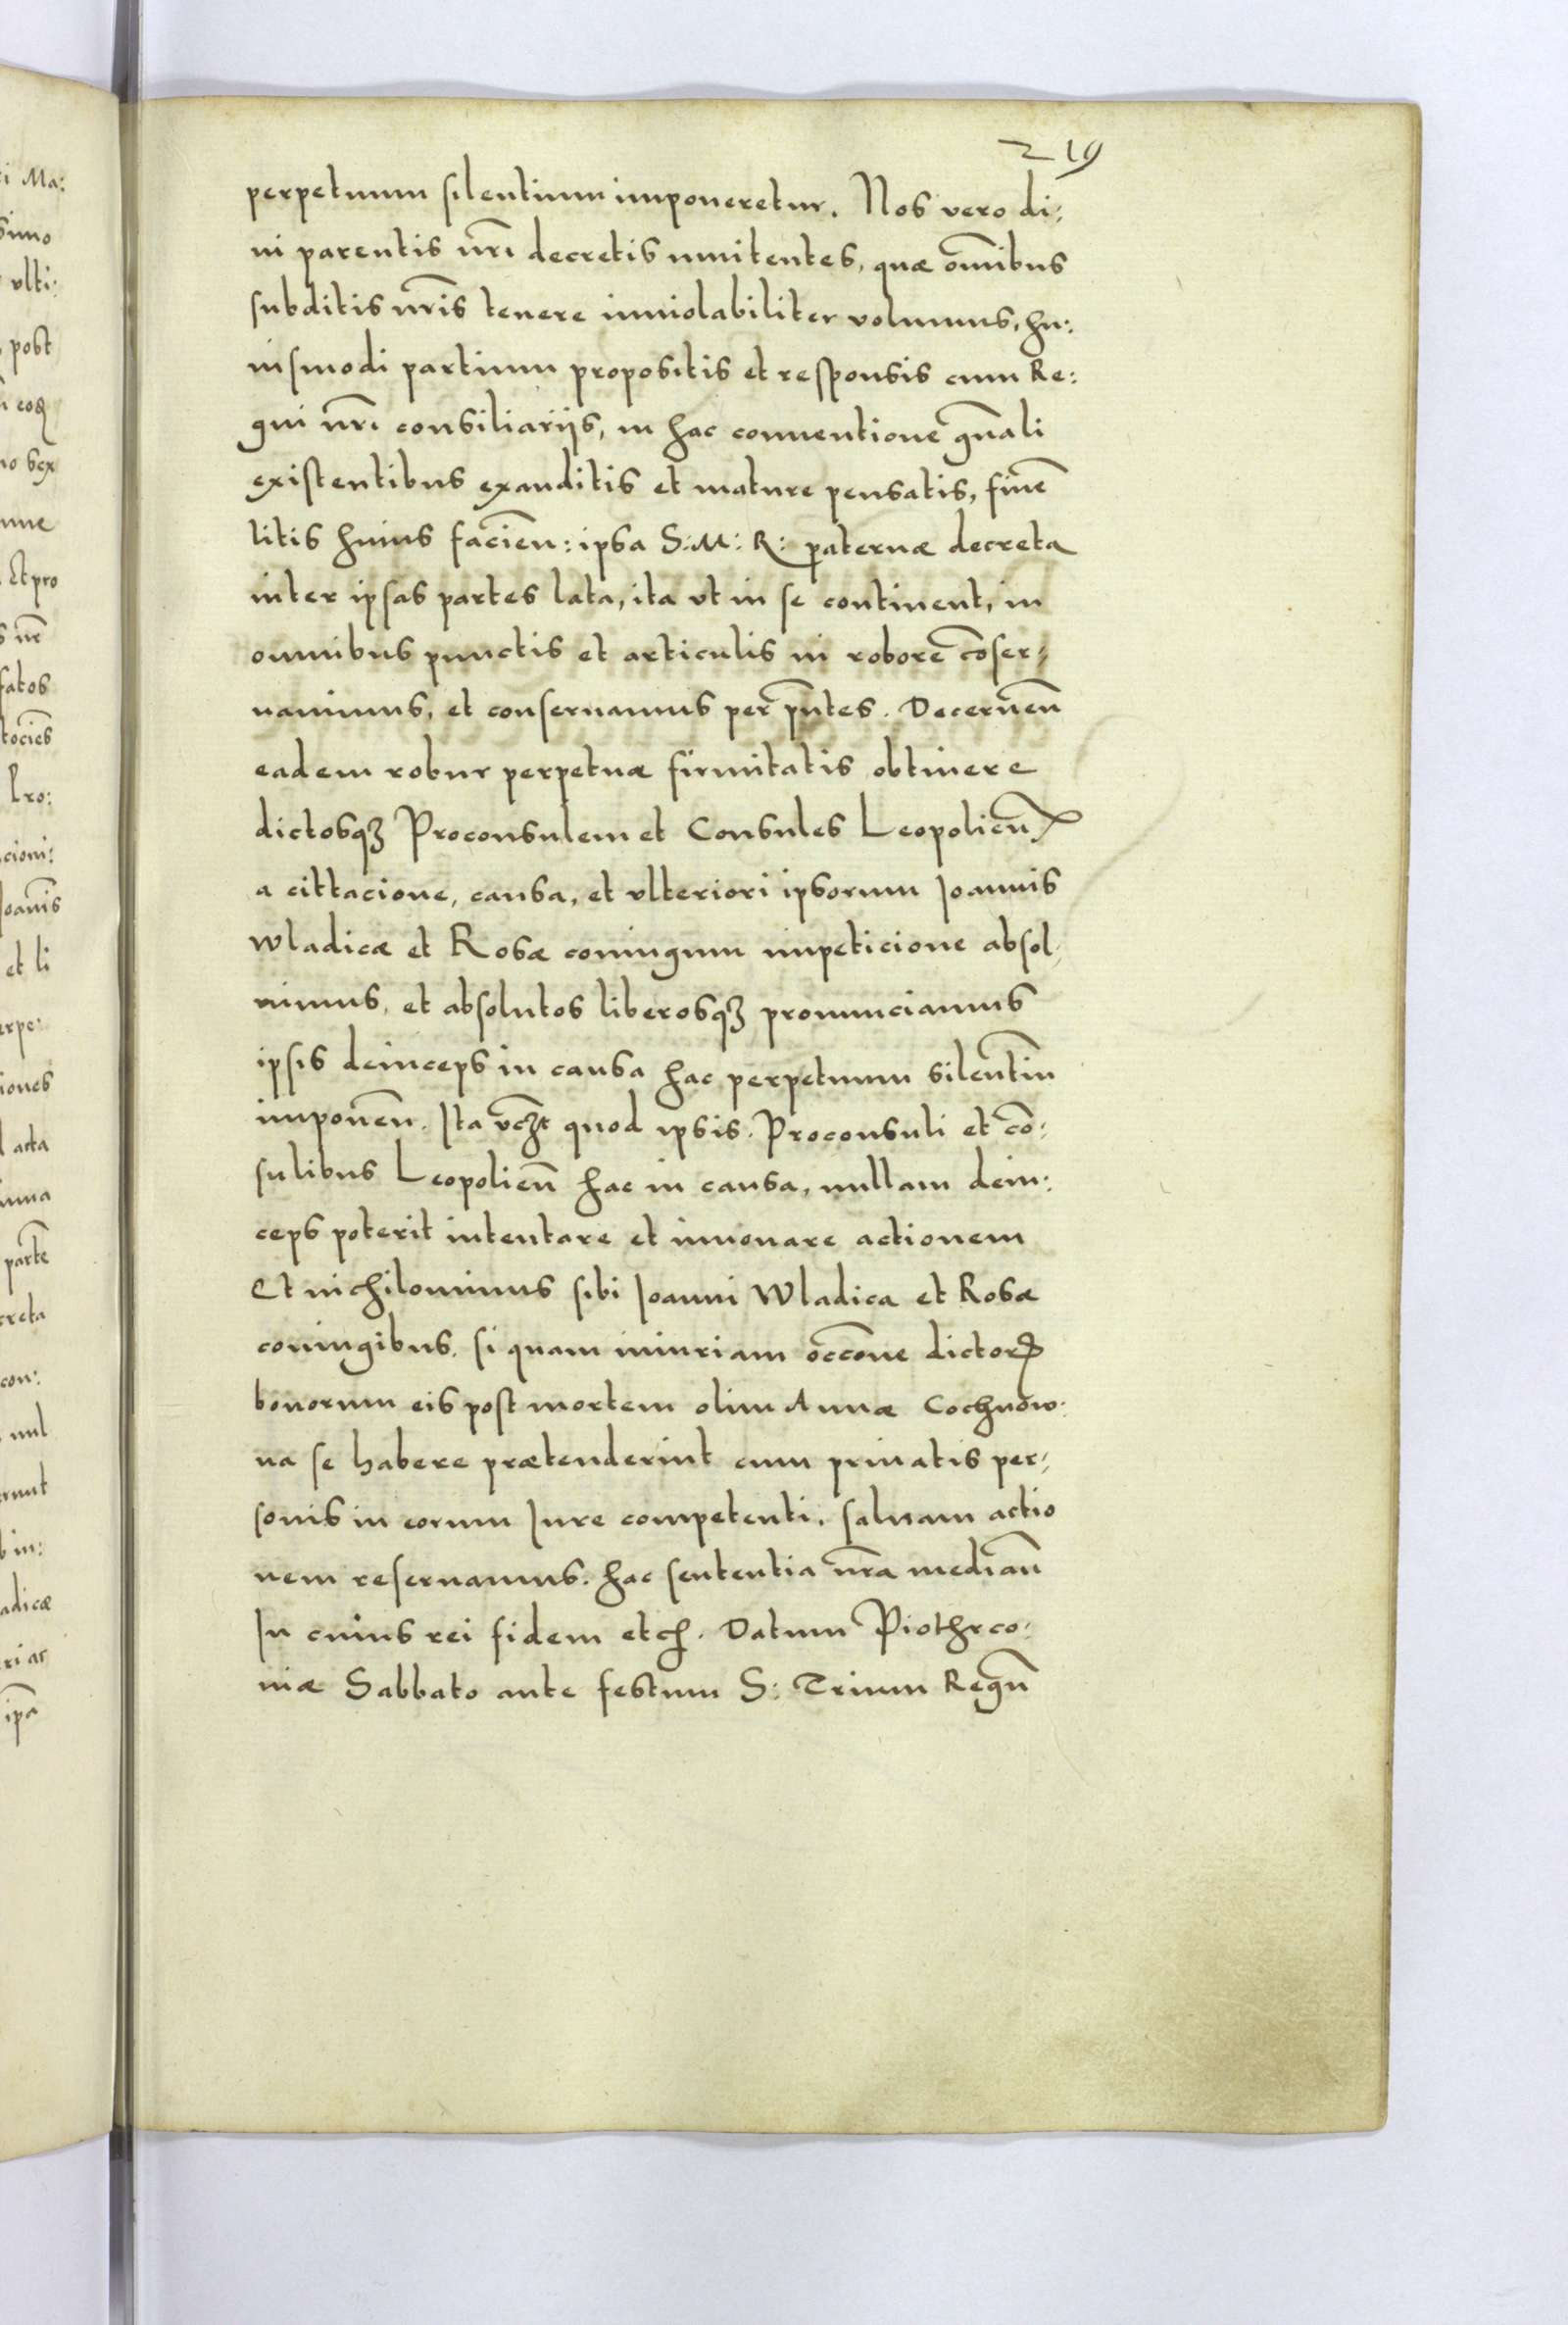 219
perpetuum silentium imponeretur. Nos vero di:
ui parentis nr̃i decretis innitentes, quæ om̃ibus
subditis nr̃is tenere inuiolabiliter volumus, hu:
iusmodi partium propositis et responsis cum Re:
gni nr̃i consiliarijs, in hac conuentione gñali
existentibus exauditis et mature pensatis, finẽ
litis huius facien̄: ipsa S: M: R: paternæ decreta
inter ipsas partes lata, ita vt in se continent, in
omnibus punctis et articulis in robore cõser-
uauimus, et conseruamus per p̃ntes. Decernen̄
eadem robur perpetuæ firmitatis obtinere
dictosqꝫ Proconsulem et Consules Leopolien̄
a cittacione, causa, et vlteriori ipsorum Joannis
Wladicæ et Rosæ coniugum impeticione absol-
uimus, et absolutos liberosqꝫ pronunciamus
ipsis deinceps in causa hac perpetuum silentiũ
imponen̄. Ita vcꝫt quod ipsis. Proconsuli et cõ:
sulibus Leopolien̄ hac in causa, nullam dein:
ceps poterit intentare et innouare actionem
Et nichilominus sibi Joanni Wladica et Rosæ
coniugibus. si quam iniuriam occõne dictorꝝ
bonorum eis post mortem olim Annæ Cochnow:
na se habere prætenderint cum priuatis per-
sonis in eorum Jure competenti. saluam actio
nem reseruamus. hac sententia nr̃a median̄
In cuius rei fidem etc̃. Datum Piothrco:
uiæ Sabbato ante festum S: Trium Regũ